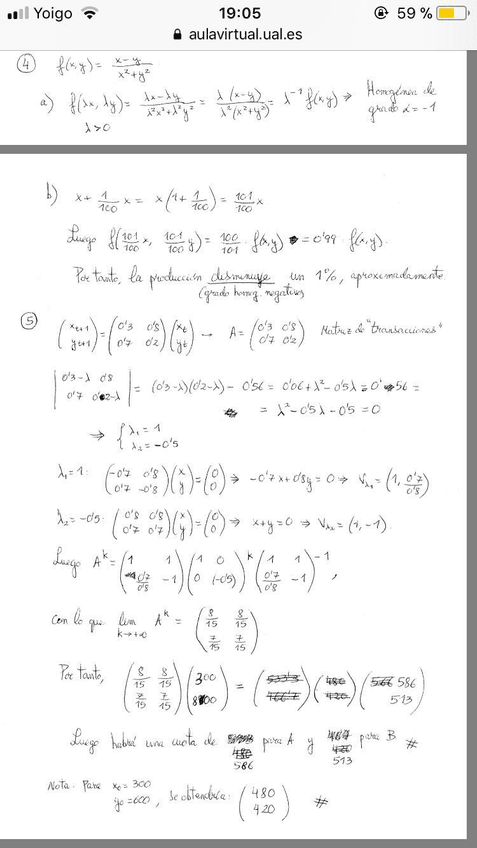 Yoigo 19:05 59 %
aulavirtual.ual.es
4 f(x,y) = x-y / x²+y²
a) f(λx, λy) = λx-λy / λ²x²+λ²y² = λ(x-y) / λ²(x²+y²) = λ⁻¹ f(x,y) ⇒ Homogénea de
λ>0 grado α = -1
b) x + 1/100 x = x(1 + 1/100) = 101/100 x
Luego f(101/100 x, 101/100 y) = 100/101 · f(x,y) = 0'99 · f(x,y).
Por tanto, la producción disminuye un 1%, aproximadamente
(grado homog. negativo)
5 (x_{t+1} y_{t+1}) = (0'3 0'8 0'7 0'2)(x_t y_t) → A = (0'3 0'8 0'7 0'2) Matriz de "transacciones"
|0'3-λ 0'8 0'7 0'2-λ| = (0'3-λ)(0'2-λ) - 0'56 = 0'06+λ²-0'5λ-0'56 =
= λ²-0'5λ-0'5 = 0
⇒ { λ₁ = 1 λ₂ = -0'5
λ₁=1: (-0'7 0'8 0'7 -0'8)(x y) = (0 0) ⇒ -0'7x+0'8y = 0 ⇒ V_{λ₁} = (1, 0'7/0'8)
λ₂=-0'5: (0'8 0'8 0'7 0'7)(x y) = (0 0) ⇒ x+y = 0 ⇒ V_{λ₂} = (1, -1).
Luego A^k = (1 1 0'7/0'8 -1)(1 0 0 (-0'5))^k (1 1 0'7/0'8 -1)^{-1},
con lo que lim_{k→+∞} A^k = (8/15 8/15 7/15 7/15)
Por tanto, (8/15 8/15 7/15 7/15)(300 800) = (586 513)
Luego habrá una cuota de 586 para A y 513 para B #
Nota: Para x₀ = 300
y₀ = 600, se obtendría: (480 420) #